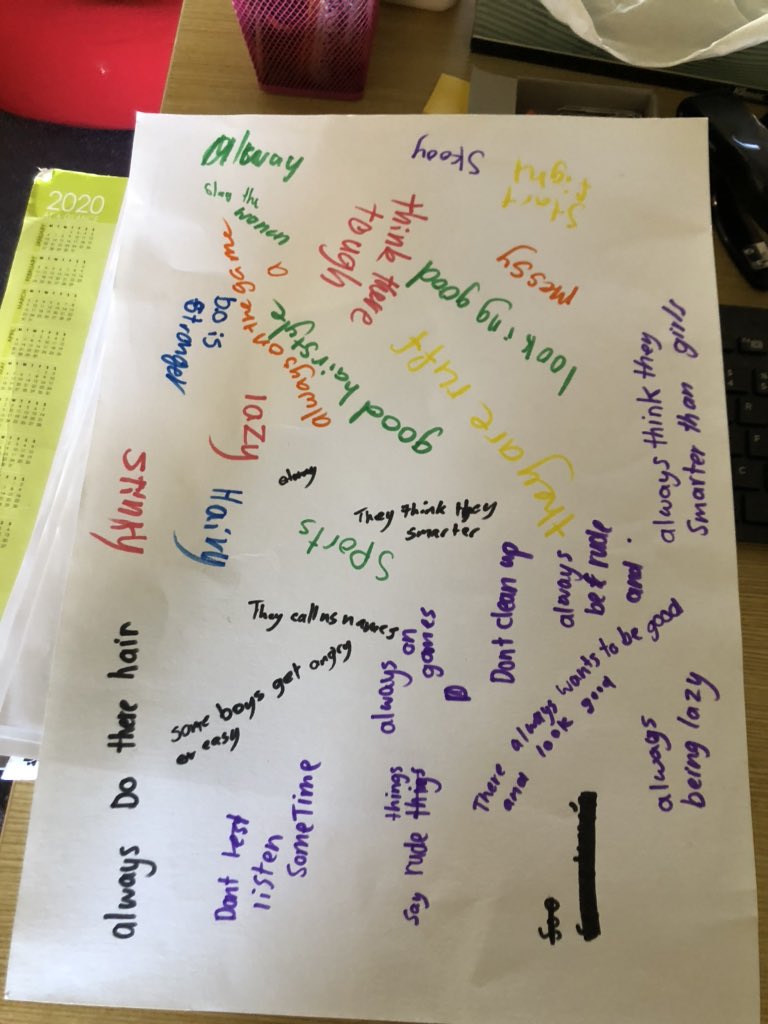 2020
Alway
Skooy
Start
fight
slap the
think there
tough
messy
looking good
always on the
bo is
Stronger
good hairstyle
they are ruff
lazy
always think they
Smarter than girls
Stinky
Hairy
Sports
They think they
smarter
Dont clean up
always
be rude
and
They call us names
always on
games
some boys get angry
or easy
There always wants to be good
and look good
always
being lazy
always Do there hair
Dont
listen
SomeTime
things
Say rude things